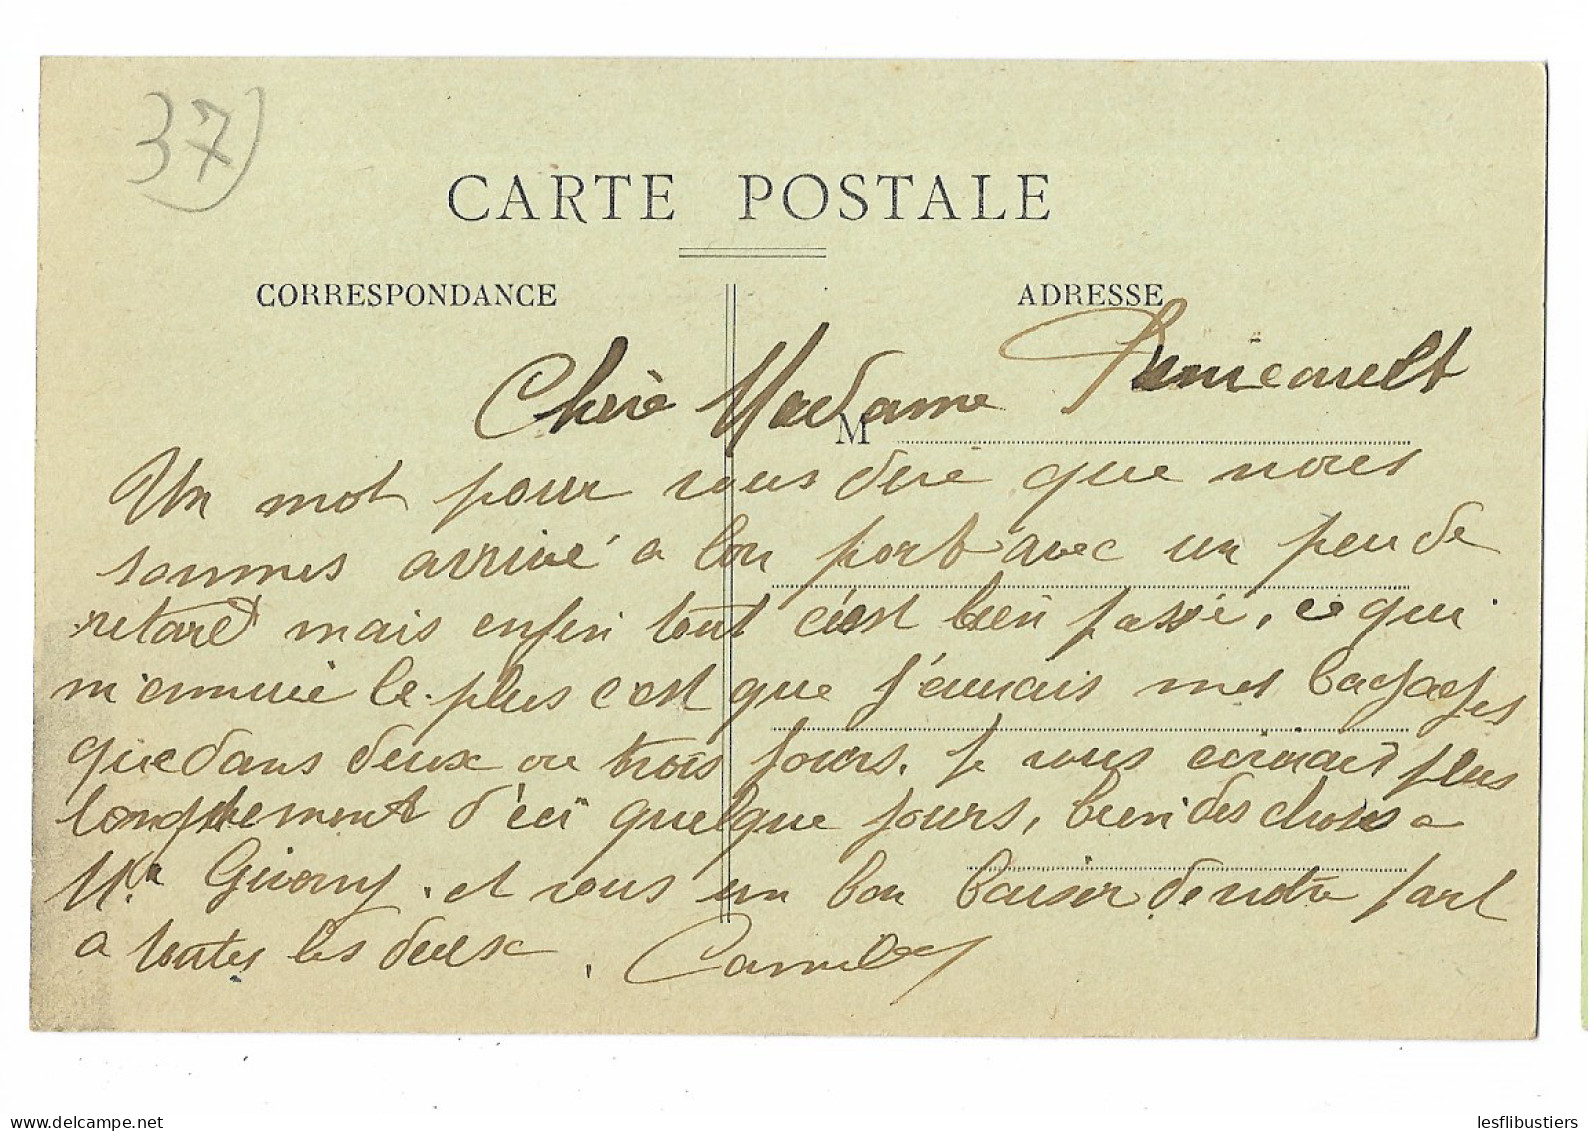 37
CARTE POSTALE
CORRESPONDANCE
ADRESSE
Chère Madame
M
Un mot pour vous dire que nous
sommes arrivé a bon port avec un peu de
retard mais enfin tout c'est bien passé, ce qui
m'ennuie le plus c'est que j'aurais mes bagages
que dans deux ou trois jours. Je vous plus
longuement d'ici quelque jours, bien des choses a
Mr et vous un bon baiser de notre part
a toutes les deux. Camille
delcampe.net
lesflibustiers